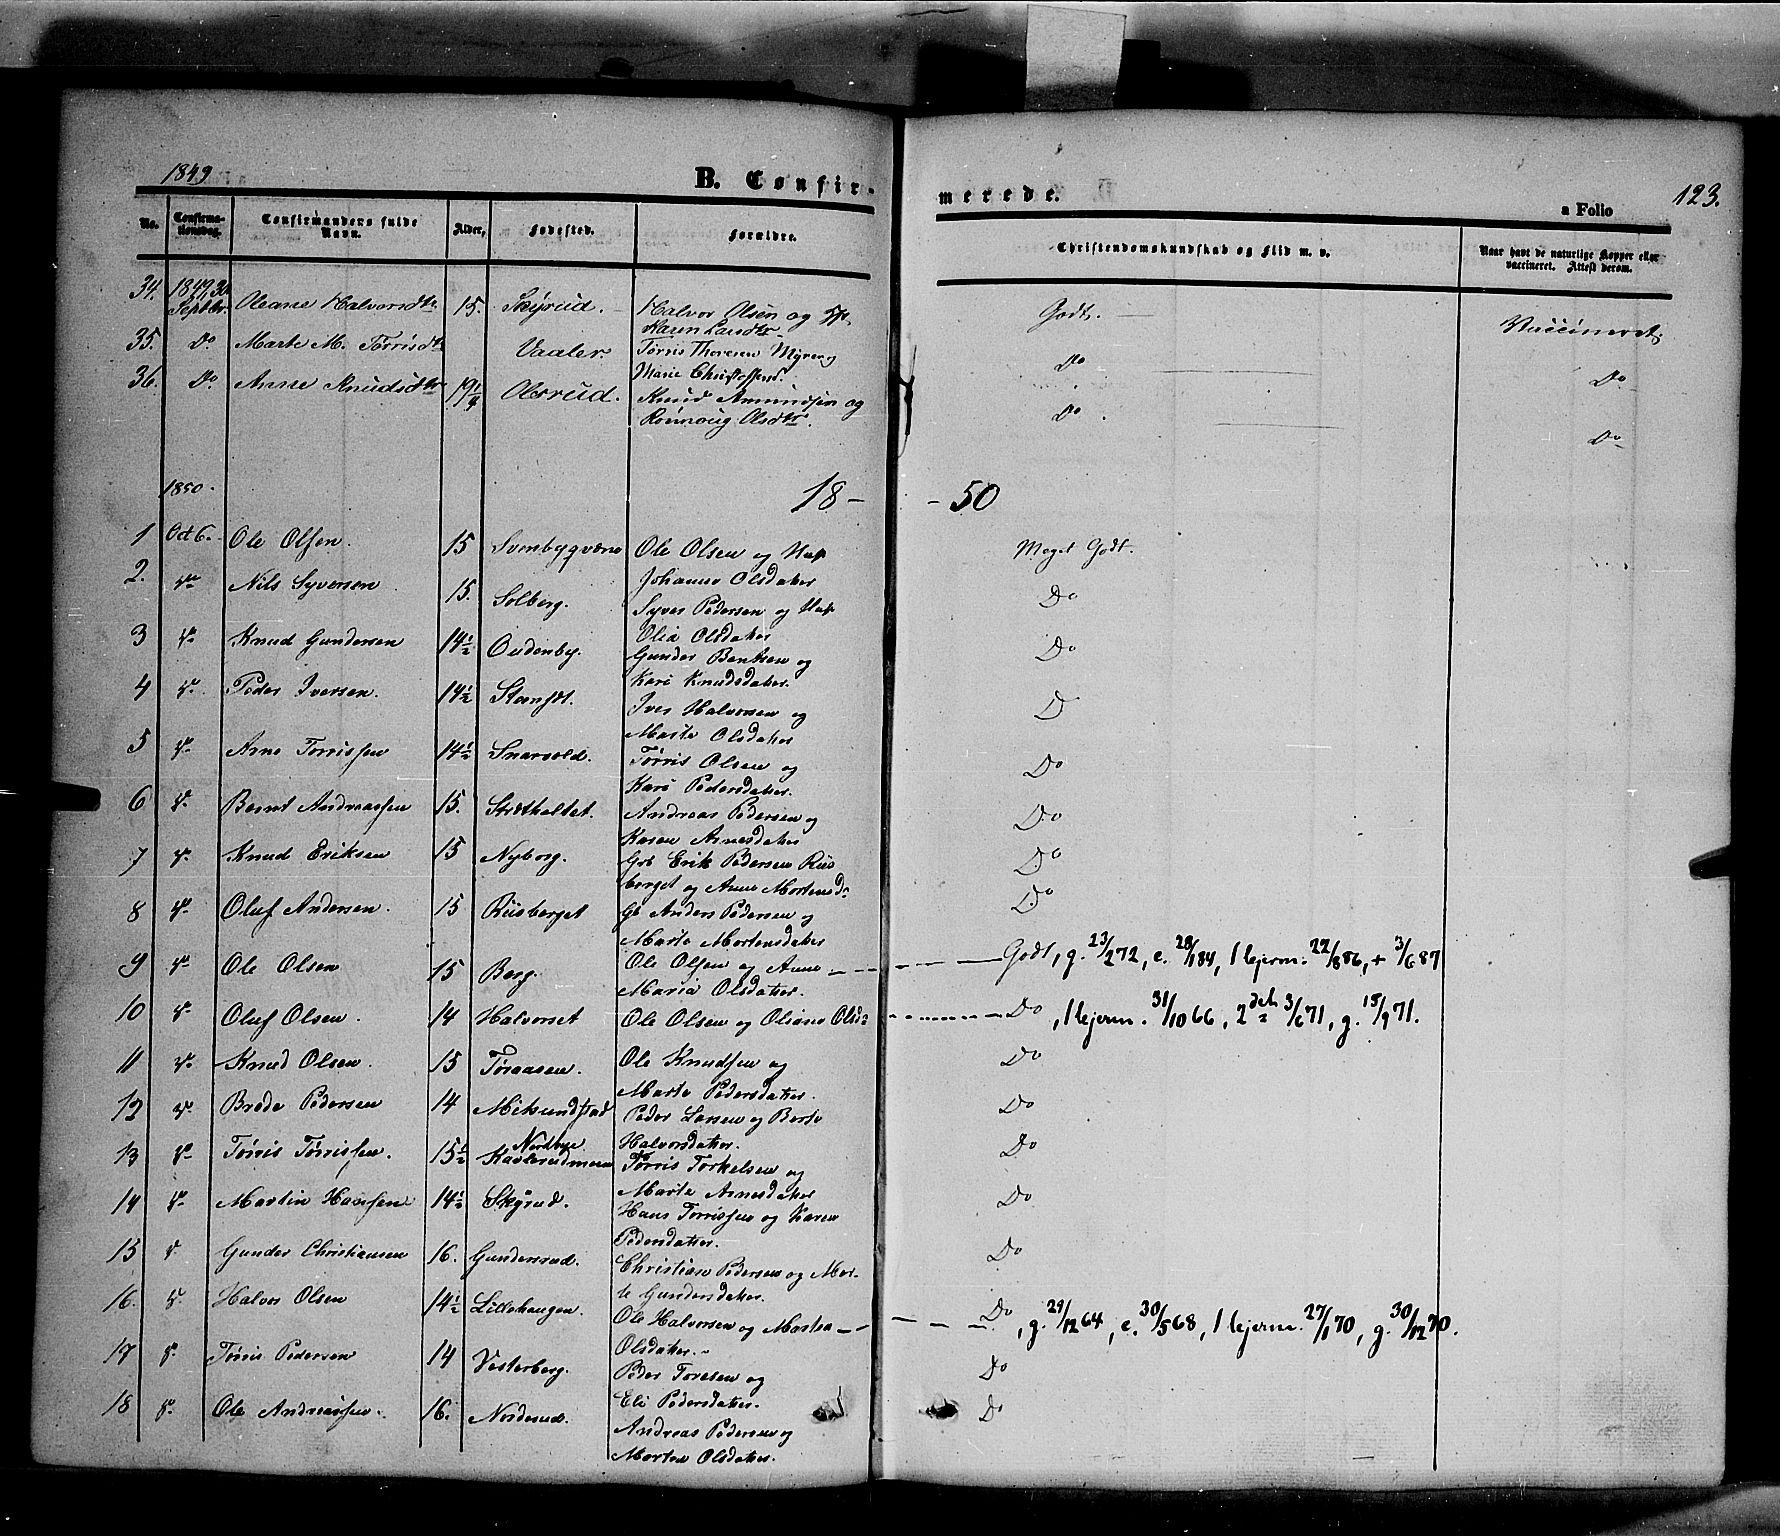 1849
B. Confirmerede.
a Folio 123.
No. Confirmationsdag. Confirmandens fulde Navn. Alder. Fødested. Forældre. Christendomskundskab og Flid m. v. Naar havt de naturlige Kopper eller vaccineret. Attest derom.
34. 1849, 30 Septbr. Oleane Halvorsdtr 15. Skyrud. Halvor Olsen og Karen Larsdtr Godt. Vaccineret.
35. Do Marte M. Tørrisdtr Vaaler Tørris Thoresen Myrer og Marie Christoffersd. Do Do
36. Do Anne Knudsdtr 19 1/4 Olsrud. Knud Amundsen og Rønnoug Olsdtr. Do. Do
1850.
18 - - 50
1 Oct 6. Ole Olsen. 15 Svenbygvæne Ole Olsen og Johanne Olsdatter Meget Godt.
2. do Nils Syversen 15. Solberg. Syver Pedersen og Olia Olsdatter Do
3 do Knud Gundersen 14 1/2 Oudenby. Gunder Bentsen og Kari Knudsdatter. Do
4 do Peder Iversen. 14 1/2 Iver Halvorsen og Marte Olsdatter D
5 do Arne Tørrissen 14 1/2 Snarvold. Tørris Olsen og Kari Pedersdatter. Do
6 do Bernt Andreassen 15. Andreas Pedersen og Karen Arnesdatter Do
7 do Knud Eriksen 15 Nyborg. Erik Pedersen Riisberget og Anne Mortensd. Do
8 do Oluf Andersen. 15 Riisberget Anders Pedersen og Marte Mortensdatter Do
9 do Ole Olsen 15 Berg. Ole Olsen og Anne Maria Olsdatter. Godt, g. 23/2 72, e. 28/1 84, 1 hjem. 22/8 86, + 3/6 87
10 do Oluf Olsen. 14 Halvorset Ole Olsen og Oliane Olsd. Do, 1 hjem. 31/10 66, 2 den 3/6 71, g. 15/9 71.
11 do Knud Olsen. 15 Toraasen. Ole Knudsen og Marte Pedersdatter. Do
12 do Brede Pedersen 14 Peder Larsen og Berte Halvorsdatter. Do
13 do Tørris Tørrissen. 15 1/2 Nordbye Tørris Torkelsen og Marte Arnesdatter Do
14 do Martin Hanssen 14 1/2 Skyrud. Hans Tørrissen og Karen Pedersdatter. Do
15 do Gunder Christiansen 16. Gundersrud. Christian Pedersen og Marte Gundersdatter. Do
16. do Halvor Olsen 14 1/2 Lillehaugen. Ole Halvorsen og Martea Olsdatter. Do, g. 29/12 64, e. 30/5 68, 1 hjem. 27/1 70, g. 30/12 70.
17 do Tørris Pedersen 14 Vesterberg. Peder Toresen og Eli Pedersdatter. Do
18 do Ole Andreassen. 16. Norderud. Andreas Pedersen og Martea Olsdatter. Do